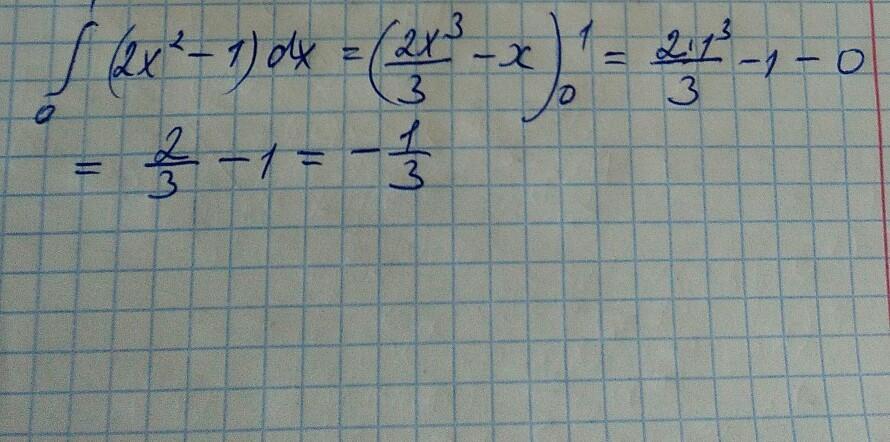 ∫₀ (2x² − 1) dx = (2x³/3 − x)₀¹ = 2·1³/3 − 1 − 0
= 2/3 − 1 = − 1/3